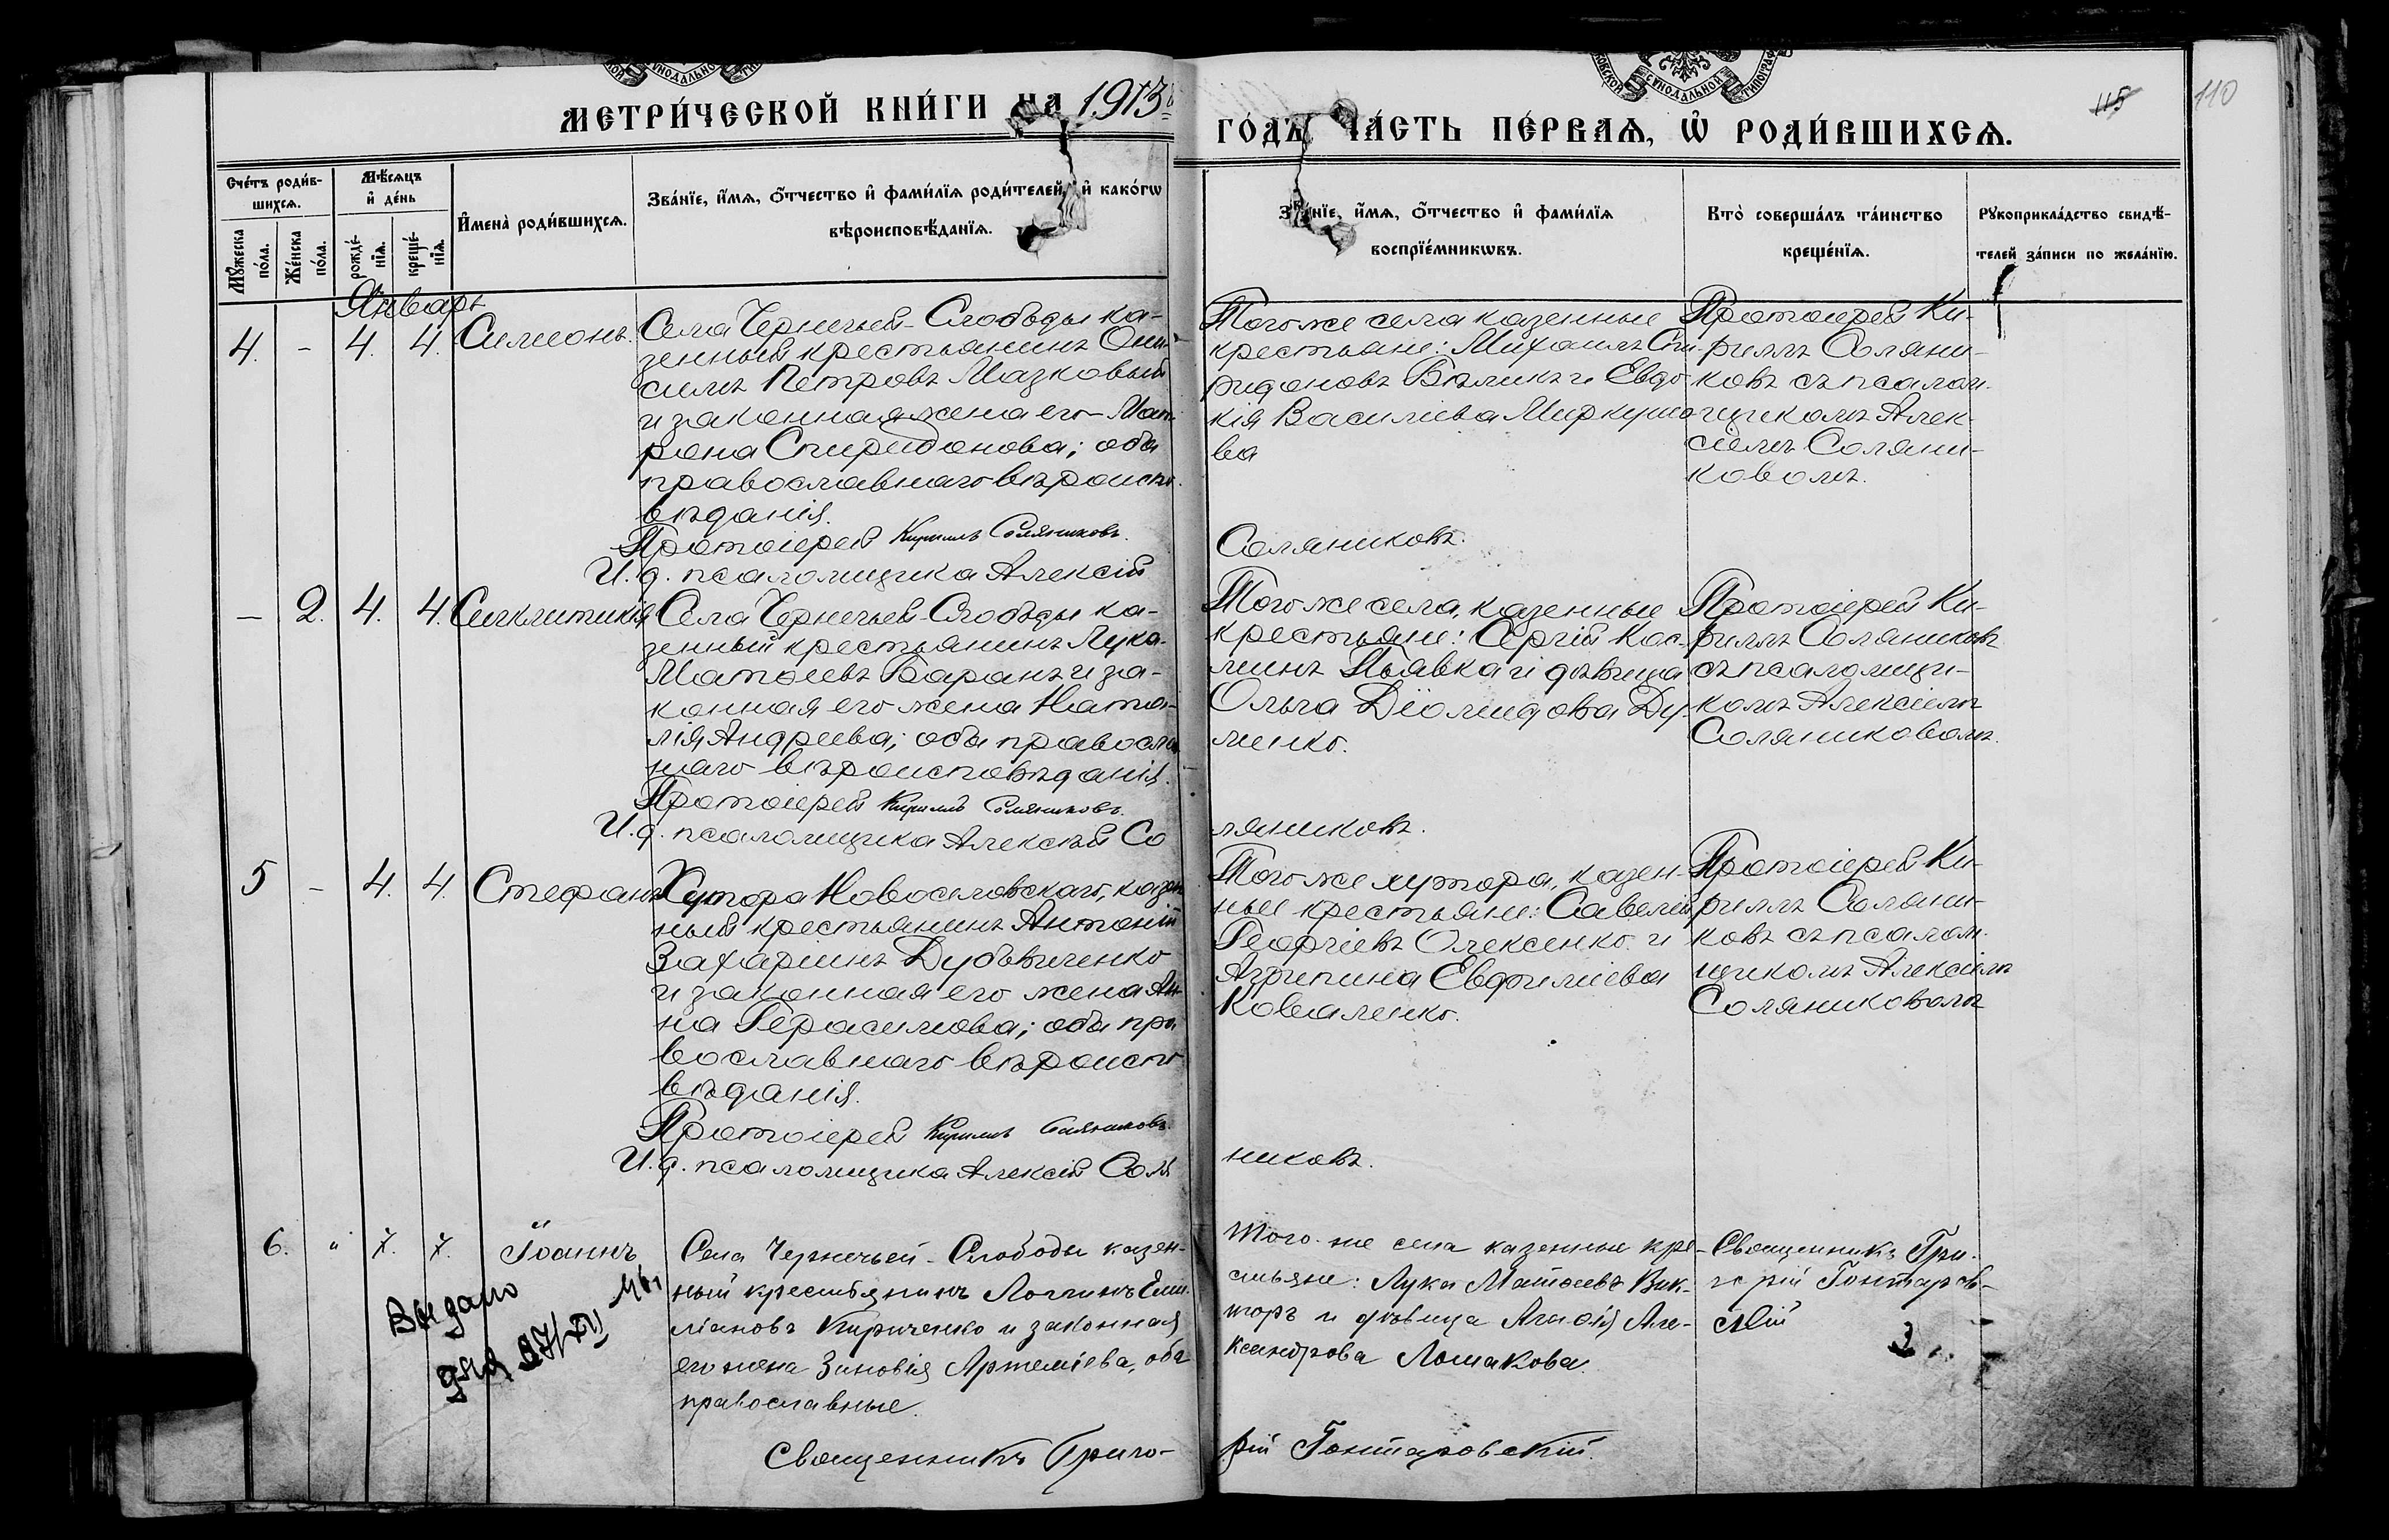 МЕТРИ́ЧЕСКОЙ КНИ́ГИ НА 1913
ГО́ДЪ ЧА́СТЬ ПЕ́РВАѦ, Ѡ҆ РОДИ́ВШИХСѦ.
115
110
Сче́тъ роди́в-
шихсѧ.
Мѣ́сѧцъ
и҆ де́нь
И҆мена̀ роди́вшихсѧ.
Зва́нїе, и҆́мѧ, ѻ҆́тчество и҆ фами́лїѧ роди́телей, и҆ како́гѡ
вѣроисповѣ́данїѧ.
Зва́нїе, и҆́мѧ, ѻ҆́тчество и҆ фами́лїѧ
воспрїе́мникѡвъ.
Кто̀ соверша́лъ та́инство
креще́нїѧ.
Рꙋкоприкла́дство свидѣ́-
телей за́писи по жела́нїю.
Мꙋ́жеска
по́ла.
Же́нска
по́ла.
рожде́-
нїѧ.
креще́-
нїѧ.
Январь
4. - 4. 4. Симеонъ.
Села Чернечьей-Слободы ка-
зенный крестьянинъ Они-
симъ Петровъ Мазковый
и законная жена его Мат-
рона Спиридонова; оба
православнаго вѣроиспо-
вѣданія.
Протоіерей Кириллъ Соляниковъ.
И. д. псаломщика Алексій
Того же села казенные
крестьяне: Михаилъ Спи-
ридоновъ Вѣликъ и Евдо-
кія Василіева Миркушо-
ва
Соляниковъ.
Протоіерей Ки-
риллъ Соляни-
ковъ съ псалом-
щикомъ Алек-
сіемъ Соляни-
ковомъ.
— 2. 4. 4. Сигклитикія
Села Чернечьей-Слободы ка-
зенный крестьянинъ Лука
Матѳеевъ Баранъ и за-
конная его жена Ната-
лія Андреева; оба правосла
наго вѣроисповѣданія.
Протоіерей Кириллъ Соляниковъ.
И. д. псаломщика Алексѣй Со
Того же села, казенные
крестьяне: Сергій Кос-
минъ Пьявка и дѣвица
Ольга Діомидова Ду-
менко.
ляниковъ.
Протоіерей Ки-
риллъ Соляниковъ
съ псаломщи-
комъ Алексіемъ
Соляниковомъ.
5 - 4. 4. Стефанъ
Хутора Новоселовскаго, казен
ный крестьянинъ Антоній
Захаріинъ Дубовиченко
и законная его жена Ан-
на Герасимова; оба пра
вославнаго вѣроиспо
вѣданія.
Протоіерей Кириллъ Соляниковъ.
И. д. псаломщика Алексій Соля
Того же хутора, казен-
ные крестьяне: Савелій
Георгіевъ Олексенко и
Агрипина Евфиміева
Коваленко.
никовъ.
Протоіерей Ки-
риллъ Соляни-
ковъ съ псалом-
щикомъ Алексіемъ
Соляниковомъ
6. " 7. 7. Іоаннъ
Выдано
Села Чернечьей-Слободы казен-
ный крестьянинъ Логгинъ Еми-
ліановъ Кириченко и законная
его жена Зиновія Артеміева, оба
православные.
Священникъ Григо-
Того-же села казенные кре-
стьяне: Лука Матѳеевъ Вик-
торъ и дѣвица Агаѳія Але-
ксандрова Лошакова.
рій Гонтаровскій.
Священникъ Гри-
горій Гонтаров-
скій